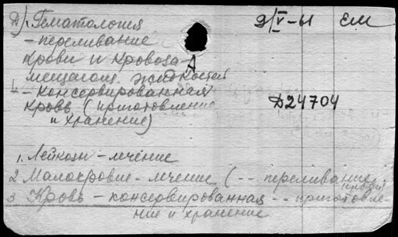 д) Гематология
9/V-61 ЕМ
- переливание
крови и кровоза-
мещающ. жидкостей
- консервированная
кровь (приготовление
и хранение)
Д24704
1. Лейкозы - лечение
2 Малокровие - лечение (-- переливание крови)
3 Кровь - консервированная -- приготовле-
ние и хранение